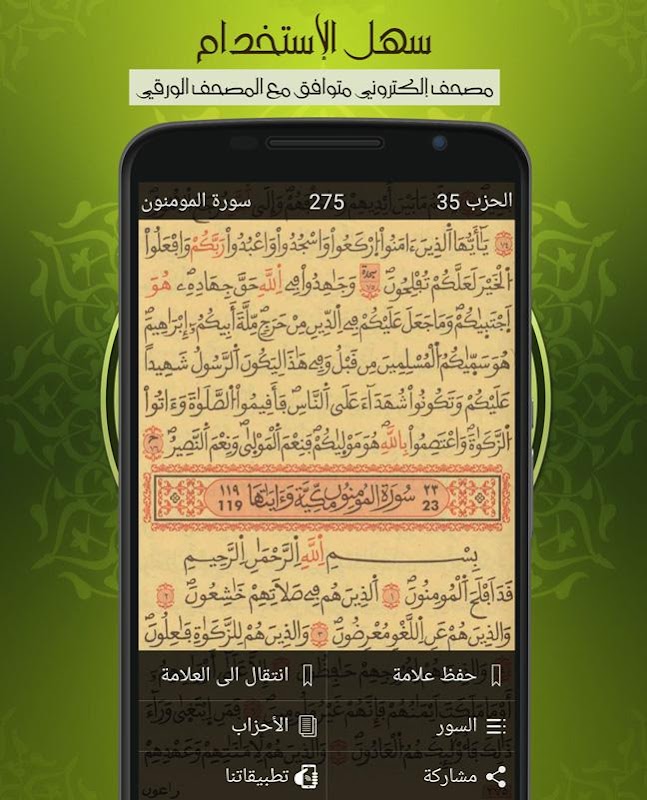 سهل الإستخدام
مصحف إلكتروني متوافق مع المصحف الورقي
الحزب 35
275
سورة المومنون
يَٰٓأَيُّهَا اَ۬لذِينَ ءَامَنُواْ اُ۪رْكَعُواْ وَاسْجُدُواْ وَاعْبُدُواْ رَبَّكُمْ وَافْعَلُواْ
اُ۬لْخَيْرَ لَعَلَّكُمْ تُفْلِحُونَ وَجَٰهِدُواْ فِے اِ۬للَّهِ حَقَّ جِهَادِهِۦ هُوَ
اَ۪جْتَبيٰكُمْ وَمَا جَعَلَ عَلَيْكُمْ فِے اِ۬لدِّينِ مِنْ حَرَجٖ مِّلَّةَ أَبِيكُمُ إِبْرَٰهِيمَ
هُوَ سَمّيٰكُمُ اُ۬لْمُسْلِمِينَ مِن قَبْلُ وَفِے هَٰذَا لِيَكُونَ اَ۬لرَّسُولُ شَهِيداً
عَلَيْكُمْ وَتَكُونُواْ شُهَدَآءَ عَلَى اَ۬لنَّاسِ فَأَقِيمُواْ اُ۬لصَّلَوٰةَ وَءَاتُواْ
اُ۬لزَّكَوٰةَ وَاعْتَصِمُواْ بِاللَّهِ هُوَ مَوْليٰكُمْ فَنِعْمَ اَ۬لْمَوْلۭيٰ وَنِعْمَ اَ۬لنَّصِيرُ
٢٣ سُورَةُ المُومِنُونَ مَكِّيَّة وَءَايَٰتُهَا ١١٩
23 119
بِسْمِ اِ۬للَّهِ اِ۬لرَّحْمَٰنِ اِ۬لرَّحِيمِ
قَدَ اَفْلَحَ اَ۬لْمُومِنُونَ ١ اَ۬لذِينَ هُمْ فِے صَلَاتِهِمْ خَٰشِعُونَ ٢
وَالذِينَ هُمْ عَنِ اِ۬للَّغْوِ مُعْرِضُونَ ٣ وَالذِينَ هُمْ لِلزَّكَوٰةِ فَٰعِلُونَ
حفظ علامة
انتقال الى العلامة
السور
الأحزاب
مشاركة
تطبيقاتنا